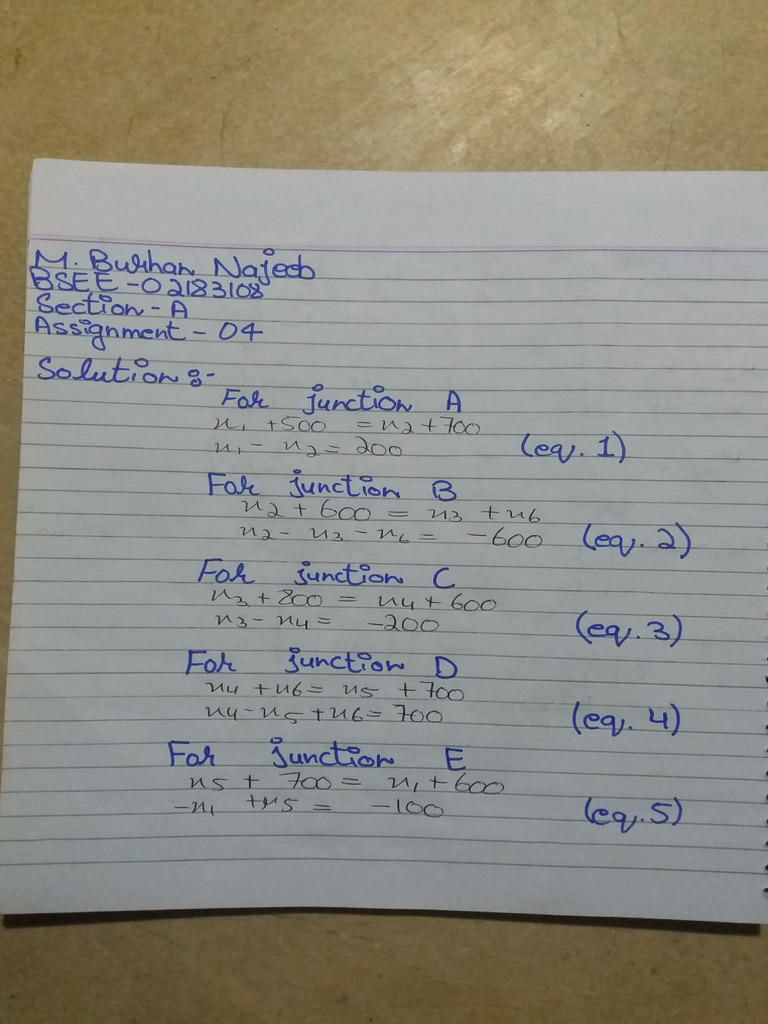 M. Burhan Najeeb
BSEE-02183108
Section - A
Assignment - 04
Solution :-
For junction A
x₁ + 500 = x₂ + 700
x₁ - x₂ = 200 (eq. 1)
For junction B
x₂ + 600 = x₃ + x₆
x₂ - x₃ - x₆ = -600 (eq. 2)
For junction C
x₃ + 800 = x₄ + 600
x₃ - x₄ = -200 (eq. 3)
For junction D
x₄ + x₆ = x₅ + 700
x₄ - x₅ + x₆ = 700 (eq. 4)
For junction E
x₅ + 700 = x₁ + 600
-x₁ + x₅ = -100 (eq. 5)